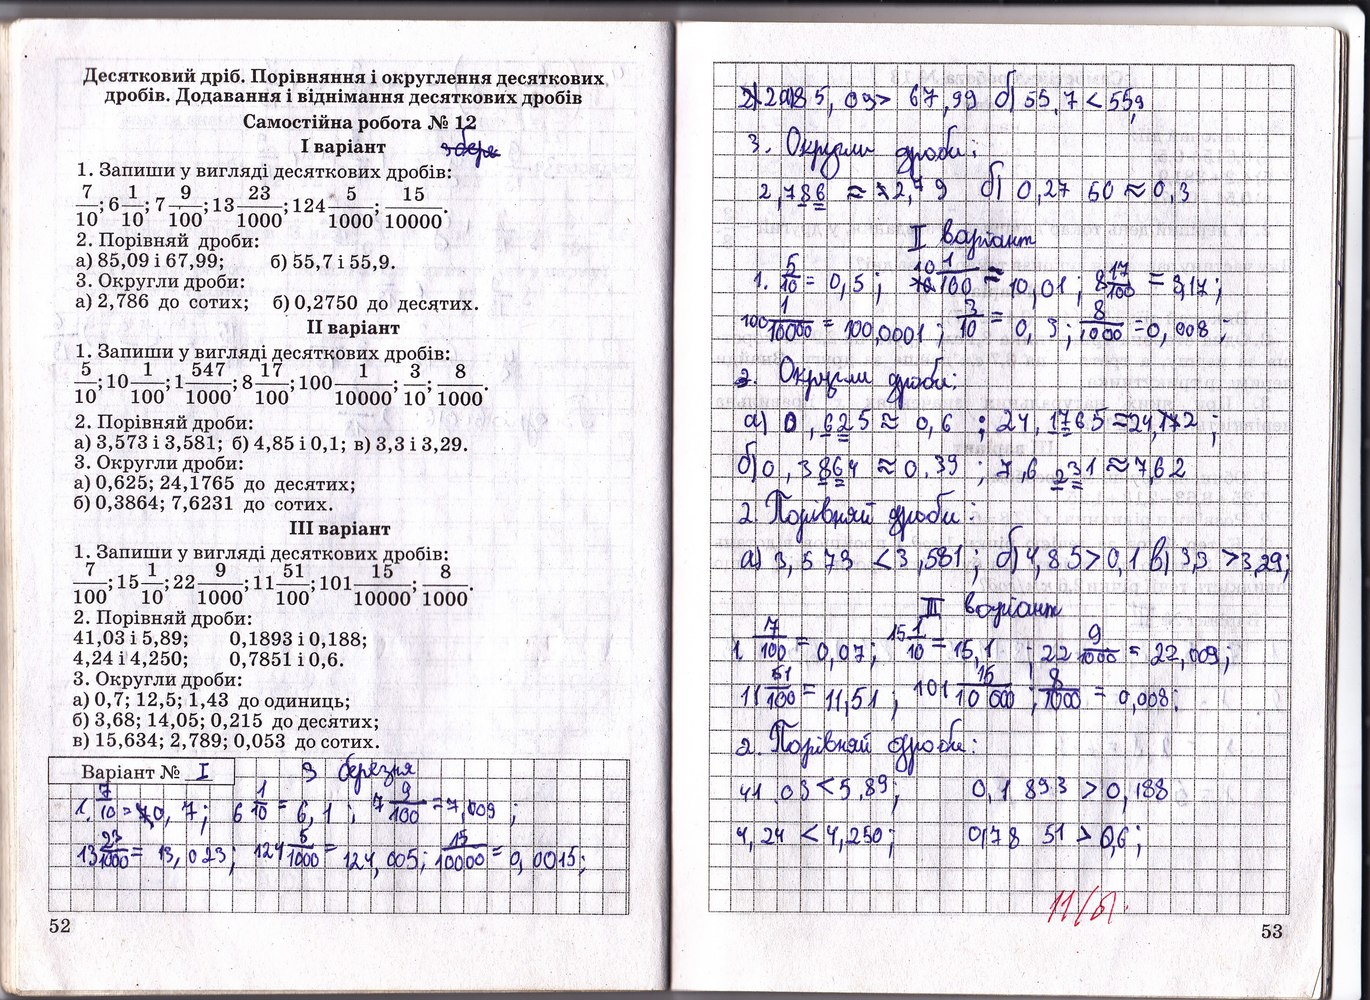 Десятковий дріб. Порівняння і округлення десяткових
дробів. Додавання і віднімання десяткових дробів
Самостійна робота № 12
І варіант
1. Запиши у вигляді десяткових дробів:
7/10; 6 1/10; 7 9/100; 13 23/1000; 124 5/1000; 15/10000.
2. Порівняй дроби:
а) 85,09 і 67,99; б) 55,7 і 55,9.
3. Округли дроби:
а) 2,786 до сотих; б) 0,2750 до десятих.
ІІ варіант
1. Запиши у вигляді десяткових дробів:
5/10; 10 1/100; 1 547/1000; 8 17/100; 100 1/10000; 3/10; 8/1000.
2. Порівняй дроби:
а) 3,573 і 3,581; б) 4,85 і 0,1; в) 3,3 і 3,29.
3. Округли дроби:
а) 0,625; 24,1765 до десятих;
б) 0,3864; 7,6231 до сотих.
ІІІ варіант
1. Запиши у вигляді десяткових дробів:
7/100; 15 1/10; 22 9/1000; 11 51/100; 101 15/10000; 8/1000.
2. Порівняй дроби:
41,03 і 5,89; 0,1893 і 0,188;
4,24 і 4,250; 0,7851 і 0,6.
3. Округли дроби:
а) 0,7; 12,5; 1,43 до одиниць;
б) 3,68; 14,05; 0,215 до десятих;
в) 15,634; 2,789; 0,053 до сотих.
Варіант № І 3 березня
1. 7/10 = 0,7; 6 1/10 = 6,1; 7 9/100 = 7,009;
13 23/1000 = 13,023; 124 5/1000 = 124,005; 15/10000 = 0,0015;
52
2. а) 85,09 > 67,99 б) 55,7 < 55,9
3. Округли дроби:
2,786 ≈ 2,79 б) 0,2750 ≈ 0,3
ІІ варіант
1. 5/10 = 0,5; 10 1/100 = 10,01; 8 17/100 = 8,17;
100 1/10000 = 100,0001; 3/10 = 0,3; 8/1000 = 0,008;
3. Округли дроби:
а) 0,625 ≈ 0,6; 24,1765 ≈ 24,172;
б) 0,3864 ≈ 0,39; 7,6231 ≈ 7,62
2. Порівняй дроби:
а) 3,573 < 3,581; б) 4,85 > 0,1 в) 3,3 > 3,29;
ІІІ варіант
1. 7/100 = 0,07; 15 1/10 = 15,1; 22 9/1000 = 22,009;
11 51/100 = 11,51; 101 15/10000; 8/1000 = 0,008;
2. Порівняй дроби:
41,03 < 5,89; 0,1893 > 0,188
4,24 < 4,250; 0,7851 > 0,6;
53